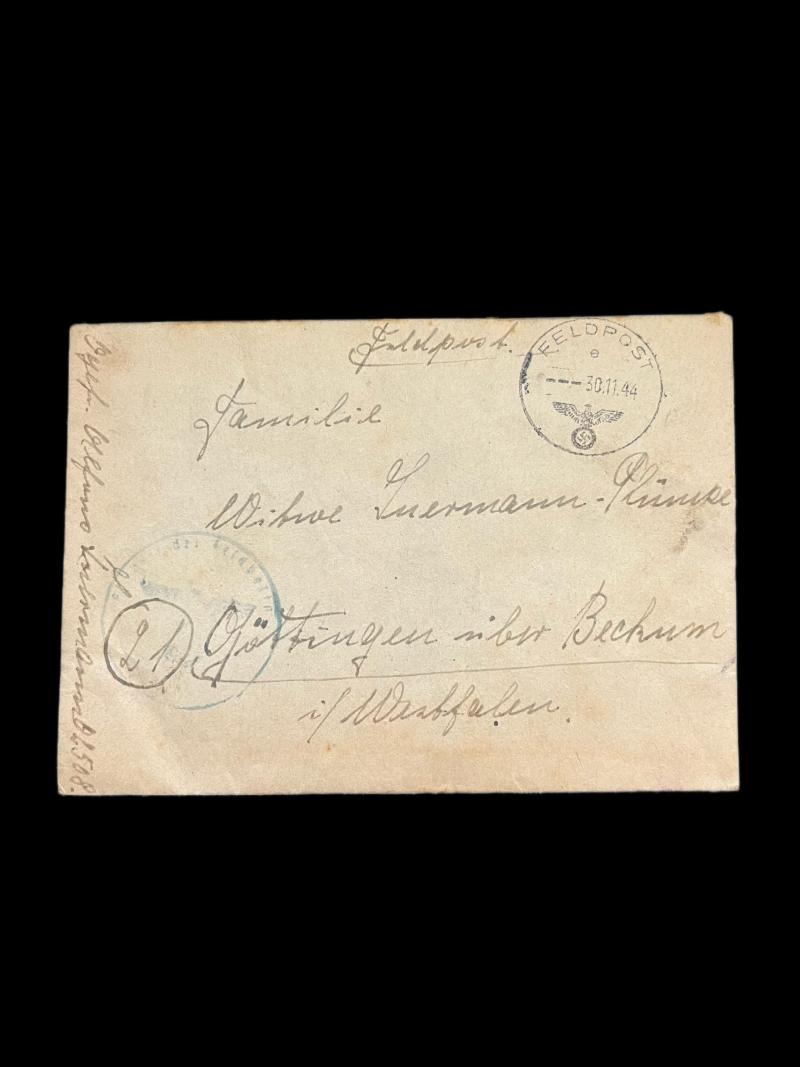 Feldpost.
FELDPOST
e
--- 30.11.44
Familie
Witwe Suermann-Plümpe
(21) Göttingen über Beckum
i/ Westfalen.
Alfons